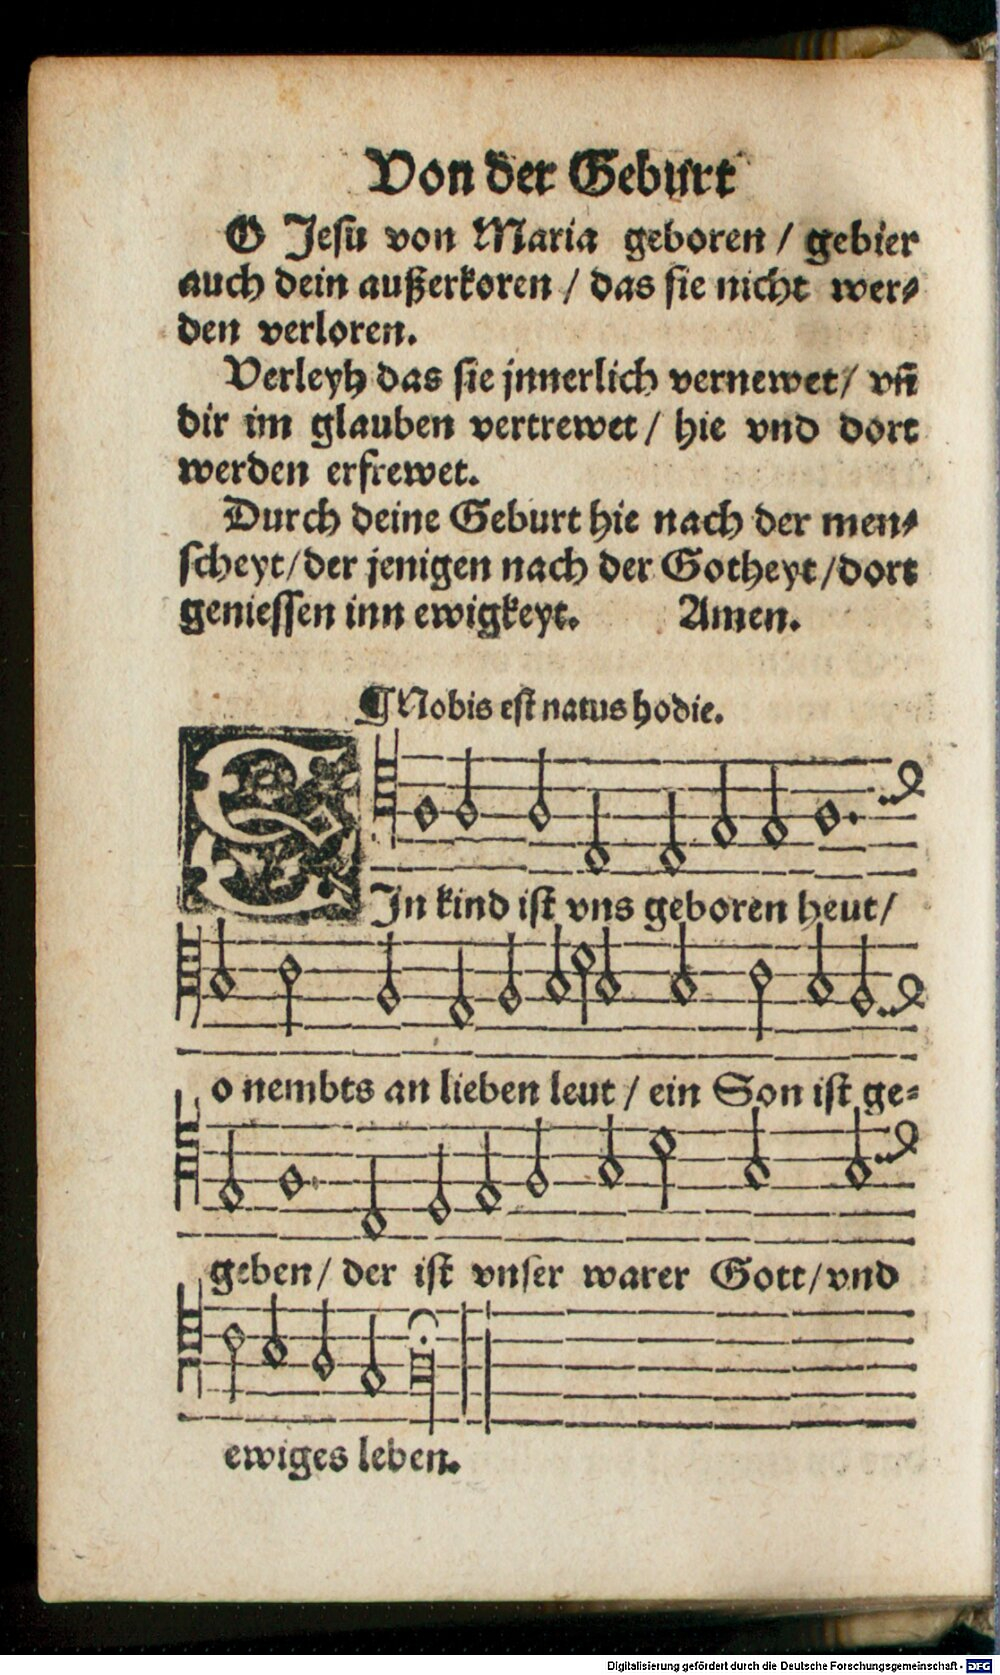 Von der Geburt
O Jesu von Maria geboren / gebier
auch dein außerkoren / das sie nicht wer⸗
den verloren.
Verleyh das sie jnnerlich vernewet / vñ
dir im glauben vertrewet / hie vnd dort
werden erfrewet.
Durch deine Geburt hie nach der men⸗
scheyt / der jenigen nach der Gotheyt / dort
geniessen inn ewigkeyt. Amen.
¶ Nobis est natus hodie.
EIn kind ist vns geboren heut /
o nembts an lieben leut / ein Son ist ge⸗
geben / der ist vnser warer Gott / vnd
ewiges leben.
Digitalisierung gefördert durch die Deutsche Forschungsgemeinschaft - DFG